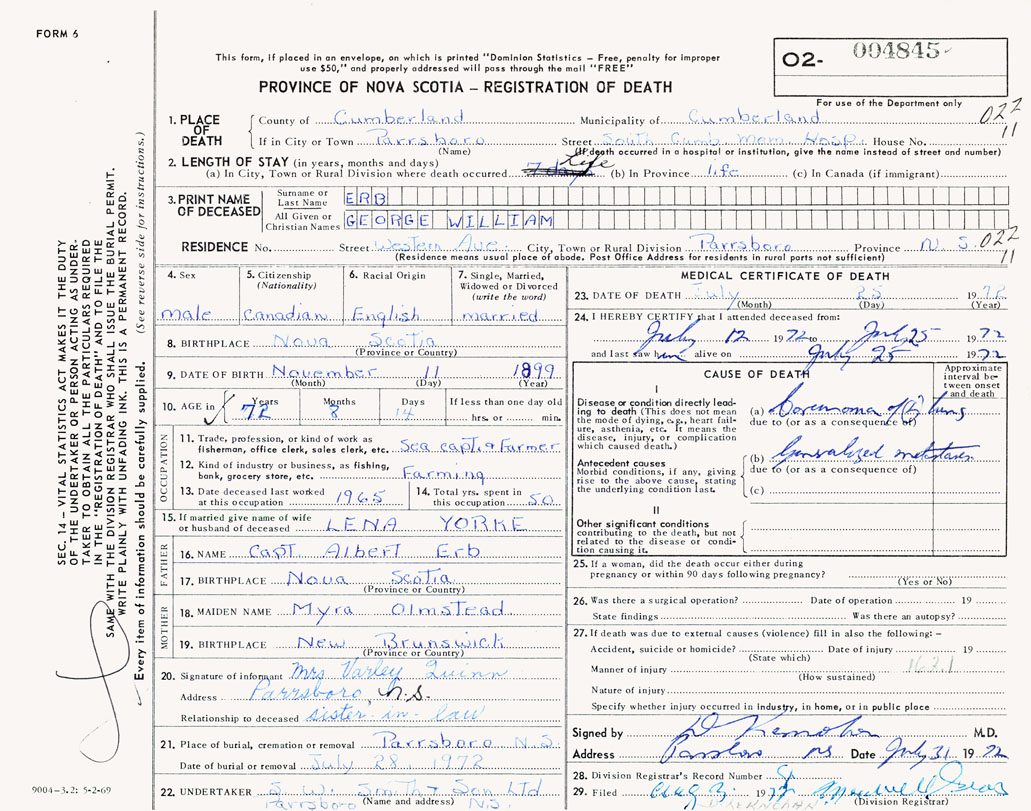 FORM 6
This form, if placed in an envelope, on which is printed "Dominion Statistics — Free, penalty for improper
use $50," and properly addressed will pass through the mail "FREE"
PROVINCE OF NOVA SCOTIA — REGISTRATION OF DEATH
O2- 004845
For use of the Department only
022
11
1. PLACE OF DEATH
County of Cumberland Municipality of Cumberland
If in City or Town Parrsboro Street South Cumb Mem. Hosp. House No.
(Name) (If death occurred in a hospital or institution, give the name instead of street and number)
2. LENGTH OF STAY (in years, months and days)
(a) In City, Town or Rural Division where death occurred 7 days Life (b) In Province life (c) In Canada (if immigrant)
3. PRINT NAME OF DECEASED
Surname or Last Name ERB
All Given or Christian Names GEORGE WILLIAM
RESIDENCE No. Street Western Ave. City, Town or Rural Division Parrsboro Province N. S. 022
11
(Residence means usual place of abode. Post Office Address for residents in rural parts not sufficient)
4. Sex male
5. Citizenship (Nationality) Canadian
6. Racial Origin English
7. Single, Married, Widowed or Divorced (write the word) married
8. BIRTHPLACE Nova Scotia
(Province or Country)
9. DATE OF BIRTH November 11 1899
(Month) (Day) (Year)
10. AGE in Years 72 Months 8 Days 14 If less than one day old hrs. or min.
OCCUPATION
11. Trade, profession, or kind of work as fisherman, office clerk, sales clerk, etc. Sea capt. & Farmer
12. Kind of industry or business, as fishing, bank, grocery store, etc. Farming
13. Date deceased last worked at this occupation 1965
14. Total yrs. spent in this occupation 50
15. If married give name of wife or husband of deceased LENA YORKE
FATHER
16. NAME Capt. Albert Erb
17. BIRTHPLACE Nova Scotia
(Province or Country)
MOTHER
18. MAIDEN NAME Myra Olmstead
19. BIRTHPLACE New Brunswick
(Province or Country)
20. Signature of informant Mrs Varley Quinn
Address Parrsboro, N.S.
Relationship to deceased sister-in-law
21. Place of burial, cremation or removal Parrsboro N.S.
Date of burial or removal July 28 1972
22. UNDERTAKER S. W. Smith & Son Ltd
(Name and address) Parrsboro N.S.
MEDICAL CERTIFICATE OF DEATH
23. DATE OF DEATH July 25 1972
(Month) (Day) (Year)
24. I HEREBY CERTIFY that I attended deceased from:
July 12 1972 to July 25 1972
and last saw him alive on July 25 1972
CAUSE OF DEATH
Approximate interval between onset and death
I
Disease or condition directly leading to death (This does not mean the mode of dying, e.g., heart failure, asthenia, etc. It means the disease, injury, or complication which caused death.)
(a)
due to (or as a consequence of)
Antecedent causes
Morbid conditions, if any, giving rise to the above cause, stating the underlying condition last.
(b) Generalized metastases
due to (or as a consequence of)
(c)
II
Other significant conditions contributing to the death, but not related to the disease or condition causing it.
25. If a woman, did the death occur either during pregnancy or within 90 days following pregnancy?
(Yes or No)
26. Was there a surgical operation? Date of operation 19
State findings Was there an autopsy?
27. If death was due to external causes (violence) fill in also the following: —
Accident, suicide or homicide? Date of injury 19
(State which)
Manner of injury 162.1
(How sustained)
Nature of injury
Specify whether injury occurred in industry, in home, or in public place
Signed by M.D.
Address Parrsboro NS Date July 31 1972
28. Division Registrar's Record Number
29. Filed Aug 3 1972
(Division Registrar)
SEC. 14 — VITAL STATISTICS ACT MAKES IT THE DUTY
OF THE UNDERTAKER OR PERSON ACTING AS UNDER-
TAKER TO OBTAIN ALL THE PARTICULARS REQUIRED
IN THE "REGISTRATION OF DEATH" AND TO FILE THE
SAME WITH THE DIVISION REGISTRAR WHO SHALL ISSUE THE BURIAL PERMIT.
WRITE PLAINLY WITH UNFADING INK. THIS IS A PERMANENT RECORD.
Every item of information should be carefully supplied. (See reverse side for instructions.)
9004-3.2: 5-2-69